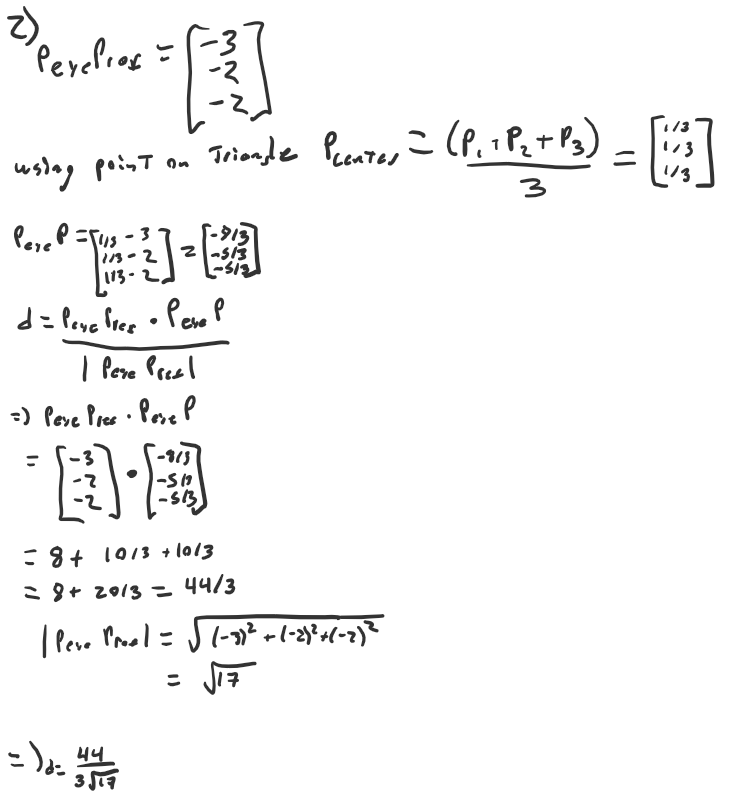 2)
PeyePref = [-3 -2 -2]
using point on Triangle Pcenter = (P1 + P2 + P3) / 3 = [1/3 1/3 1/3]
PeyeP = [1/3 - 3 1/3 - 2 1/3 - 2] = [-8/3 -5/3 -5/3]
d = PeyePref · PeyeP / |PeyePref|
=) PeyePref · PeyeP
= [-3 -2 -2] · [-8/3 -5/3 -5/3]
= 8 + 10/3 + 10/3
= 8 + 20/3 = 44/3
|PeyePref| = √(-3)² + (-2)² + (-2)²
= √17
=) d = 44 / 3√17